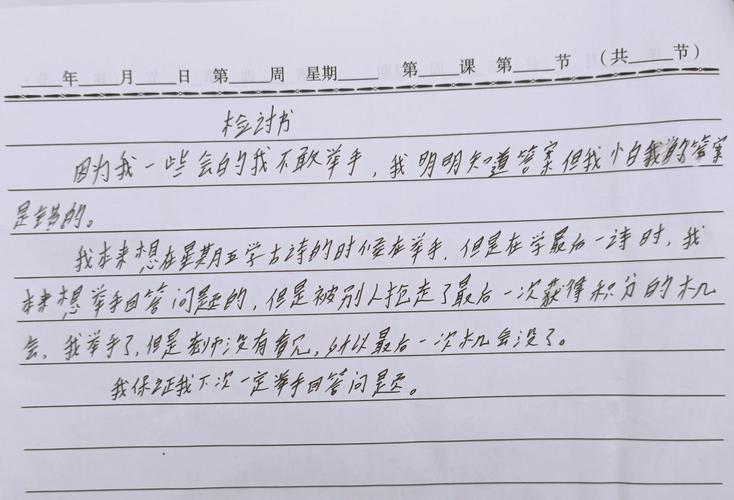 ____年____月____日 第____周 星期____ 第____课 第____节 (共____节)
检讨书
因为我一些会的我不敢举手，我明明知道答案但我怕我的答案
是错的。
我本来想在星期五学古诗的时候在举手．但是在学最后一诗时，我
本来想举手回答问题的，但是被别人抢走了最后一次获得积分的机
会、我举手了，但是老师没有看见，所以最后一次机会没了。
我保证我下次一定举手回答问题。